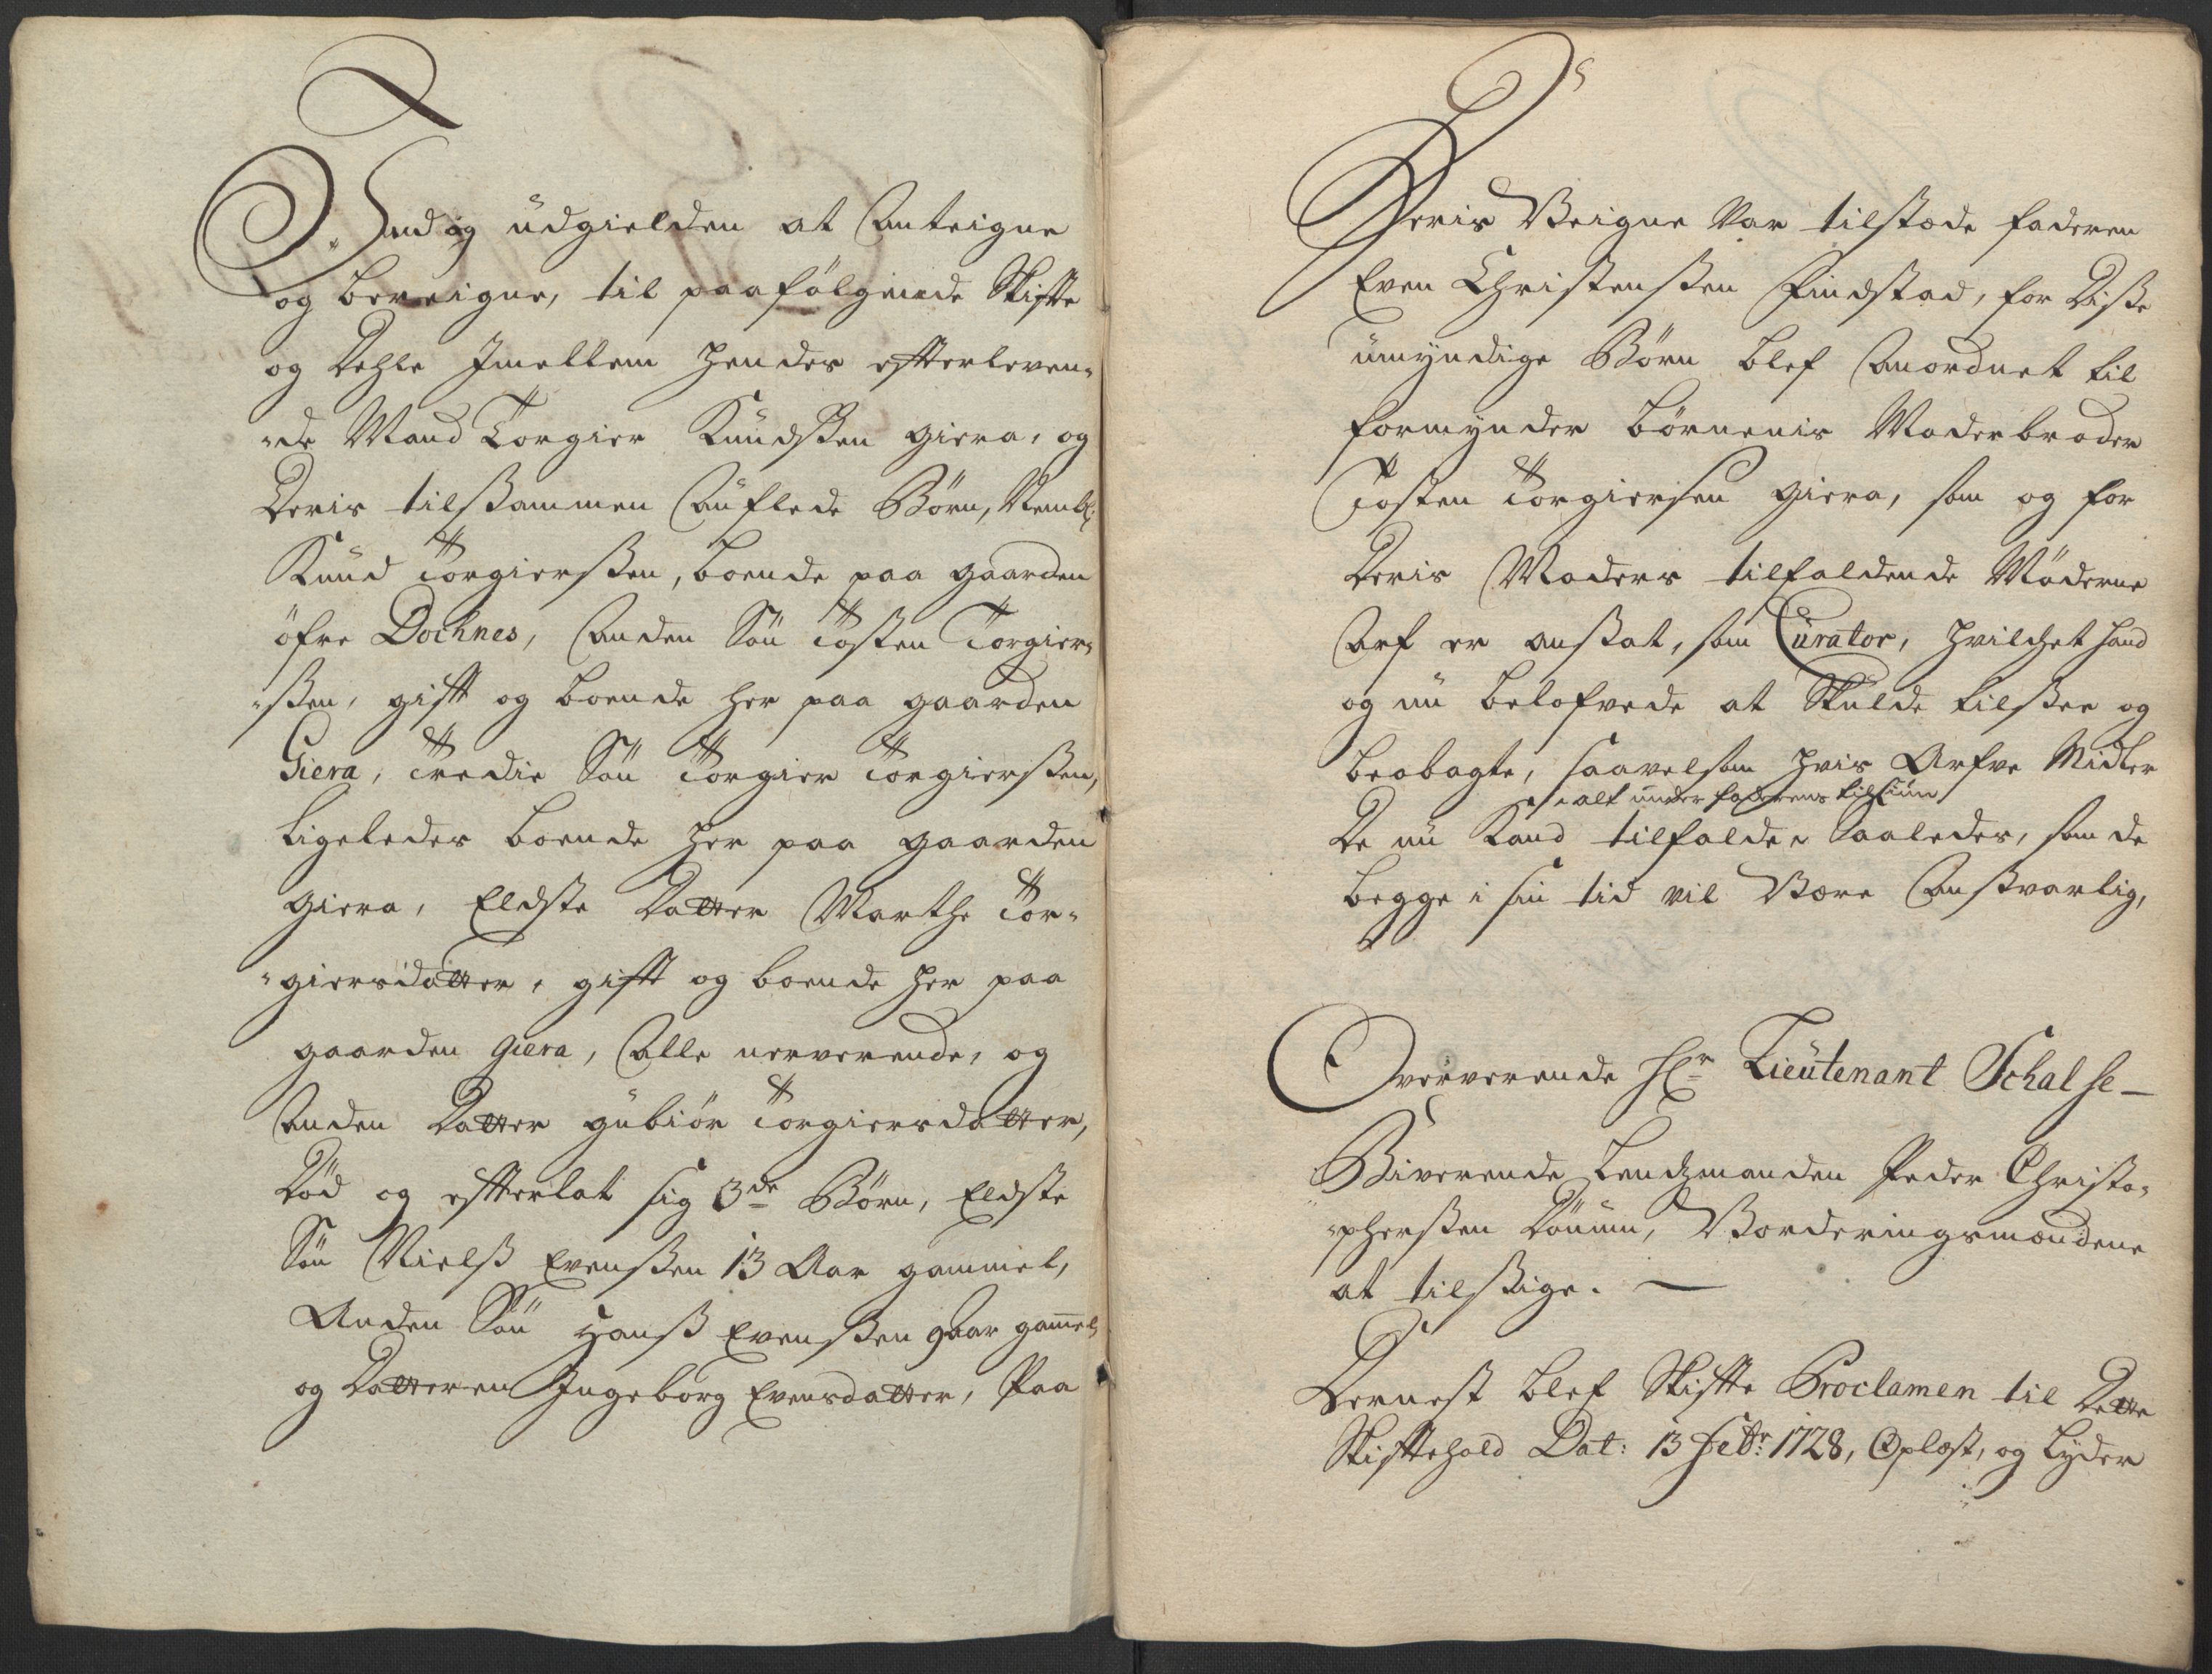 Ind og üdgielden at Anteigne
og bereigne, til paafølgende Skifte
og Dehle Imellem hendes efterleven-
-de Mand Torgier Knüdssen Giera, og
Deris tilsammen Auflede Børn, Nembl:
Knüd Torgierssen, boende paa gaarden
öfre Dochnes, Anden Søn Tosten Torgier-
-ssen, gift og boende her paa gaarden
Giera, Tredie Søn Torgier Torgierssen,
Ligeledes boende her paa gaarden
Giera, Eldste Datter Marthe Tor-
-giersdatter, gift og boende her paa
gaarden Giera, Alle nerverende, og
Anden Datter Gubiør Torgiersdatter,
Død og efterlat sig 3de Børn, Eldste
Søn Nielss Evenssen 13 Aar gammel,
Anden Søn Hanss Evenssen 9 aar gamel,
og Datteren Ingeborg Evensdatter, Paa
Deris Veigne Var tilstæde faderen
Even Christenssen Findstad, for Disse
ümyndige Børn blef Anordnet til
formynder Børnenis Moderbroder
Tosten Torgiersen Giera, som og for
Deris Moders tilfaldende Møderne
Arf er ansat, som Cürator, hvilchet hand
og nü belofvede at Skulde tilsee og
beobagte, saavelsom hvis Arfve Midler
alt ünder faderens tilsiün
De nü Kand tilfalde, Saaledes, som de
begge i sin tid vil Være Ansvarlig,
Oververende Hr Lieütenant Schalse –
Biverende Lendsmanden Peder Christo-
-pherssen Dønüm, Vorderingsmændene
at tilsige. –
Dernest blef Skifte Proclamen til Dette
Skiftehold Dat: 13 Febr: 1728, Oplæst, og Lyder